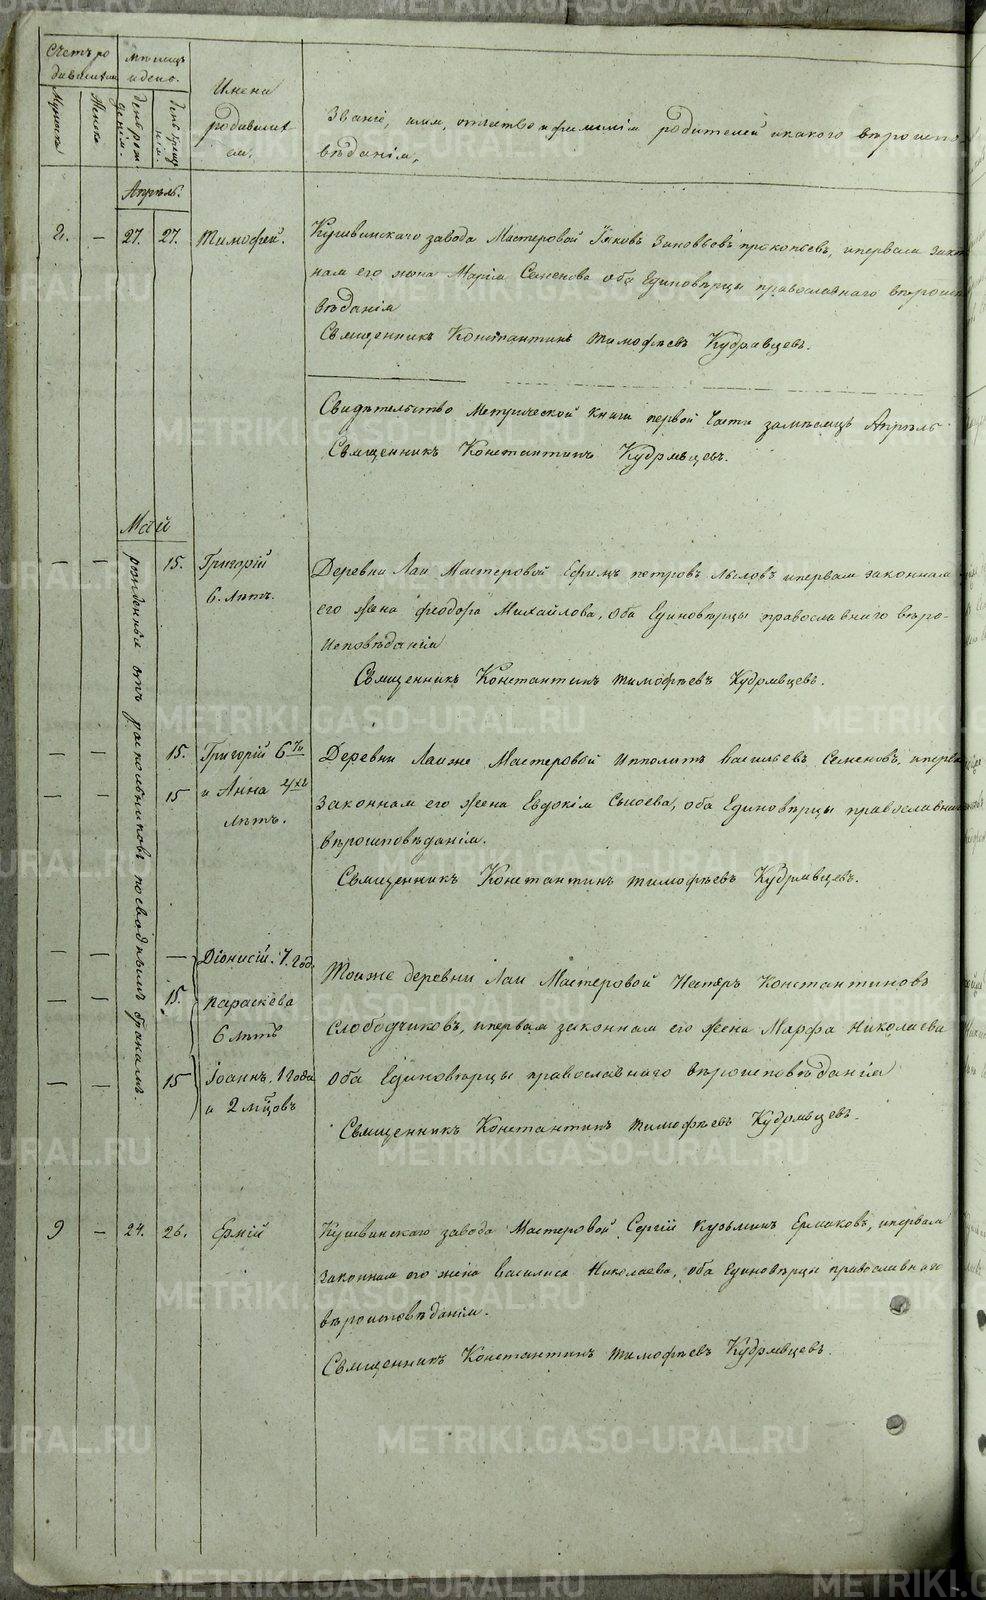 Счетъ ро
дившихся
Мѣсяцъ
и день.
Мужеска
Женска
день рож
денія.
день крещ
нія.
Имена
родивших
ся.
Званіе, имя, отчество и фамилія родителей и какого вѣроиспо
вѣданія,
Апрѣль.
2. — 27. 27. Тимофей. Кушвинскаго завода Мастеровой Іяковъ Зиновьевъ прокопьевъ, и первая закон
ная его жена Марія Семенова оба Единовѣрцы православнаго вѣроисп
вѣданія
Священникъ Константинъ тимофѣевъ Кудрявцевъ.
Свидѣтельство Метрической Книги первой части за мѣсяцъ Апрѣль
Священникъ Константинъ Кудрявцевъ.
Май
рожденные отъ раскольниковъ по сводныимъ бракамъ.
— — 15. Григорій
6. лѣтъ.
Деревни Лаи Мастеровой Ефимъ петровъ и первая законная
его жена феодора Михайлова, оба Единовѣрцы православнаго вѣро-
исповѣданія
Священникъ Константинъ тимофѣевъ Кудрявцевъ.
— — 15. Григорій 6ти
— — 15 и Анна 4хъ
лѣтъ.
Деревни Лаи же Мастеровой Ипполитъ васильевъ Семеновъ. и перва
законная его жена Евдокія Сысоева, оба Единовѣрцы православна
вѣроисповѣданія.
Священникъ Константинъ тимофѣевъ Кудрявцевъ.
— — — Діонисій. 7. год.
— — 15. параскева
6 лѣтъ
— — 15 Іоаннъ. 1 года
и 2 мцовъ
Тоиже деревни Лаи Мастеровой Нестеръ Константиновъ
слободчиковъ, и первая законная его жена Марфа Николаева
оба Единовѣрцы православнаго вѣроисповѣданія
Священникъ Константинъ тимофѣевъ Кудрявцевъ.
9 — 24. 26. Ермій Кушвинскаго завода Мастеровой Сергій кузьминъ Ермаковъ, и первая
законная его жена василиса Николаева, оба Единовѣрцы православнаго
вѣроисповѣданія.
Священникъ Константинъ тимофѣевъ Кудрявцевъ.
METRIKI.GASO-URAL.RU